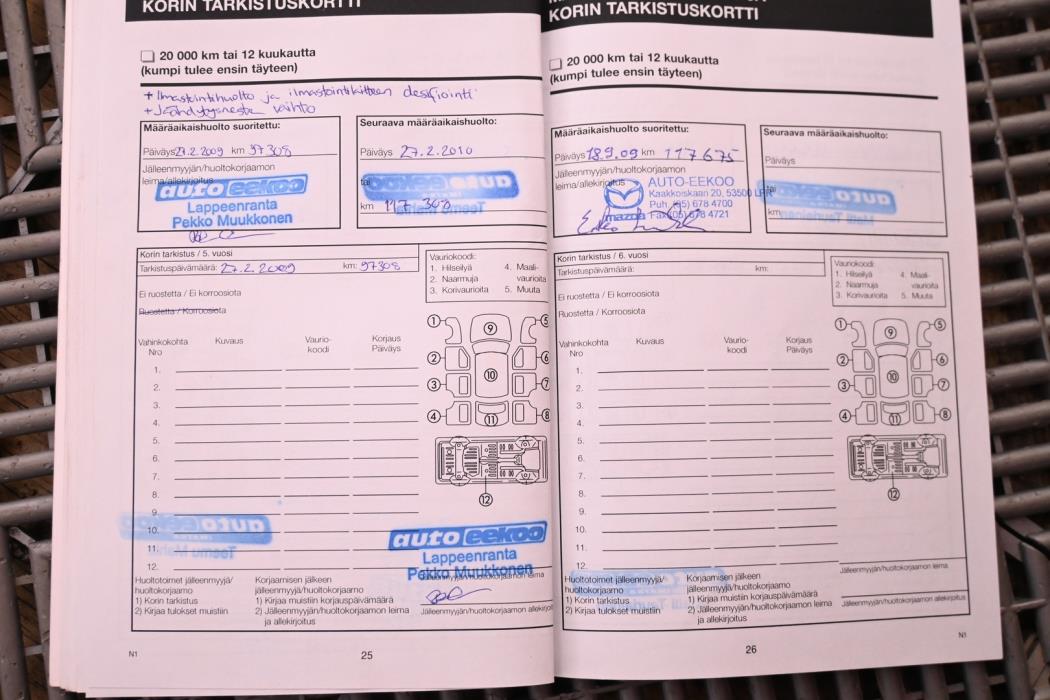 KORIN TARKISTUSKORTTI
20 000 km tai 12 kuukautta
(kumpi tulee ensin täyteen)
+ Ilmastointihuolto ja ilmastointilaitteen desifiointi
+ Jäähdytysneste vaihto
Määräaikaishuolto suoritettu:
Päiväys 27.2.2009 km 97308
Jälleenmyyjän/huoltokorjaamon
leima/allekirjoitus
auto eekoo
Lappeenranta
Pekko Muukkonen
Seuraava määräaikaishuolto:
Päiväys 27.2.2010
tai
km 117 308
Korin tarkistus / 5. vuosi
Tarkistuspäivämäärä: 27.2.2009 km: 97308
Vauriokoodi:
1. Hilseilyä 4. Maali-
2. Naarmuja vaurioita
3. Korivaurioita 5. Muuta
Ei ruostetta / Ei korroosiota
Ruostetta / Korroosiota
Vahinkokohta Kuvaus Vaurio- Korjaus
Nro koodi Päiväys
1.
2.
3.
4.
5.
6.
7.
8.
9.
10.
11.
12.
1 2 3 4 5 6 7 8 9 10 11 12
auto eekoo
Lappeenranta
Pekko Muukkonen
Huoltotoimet jälleenmyyjä/
huoltokorjaamo
1) Korin tarkistus
2) Kirjaa tulokset muistiin
Korjaamisen jälkeen
jälleenmyyjä/huoltokorjaamo
1) Kirjaa muistiin korjauspäivämäärä
2) Jälleenmyyjän/huoltokorjaamon leima
ja allekirjoitus
Jälleenmyyjän/huoltokorjaamon leima
Jälleenmyyjän/huoltokorjaamon allekirjoi
N1
25
KORIN TARKISTUSKORTTI
20 000 km tai 12 kuukautta
(kumpi tulee ensin täyteen)
Määräaikaishuolto suoritettu:
Päiväys 18.9.09 km 117675
Jälleenmyyjän/huoltokorjaamon
leima/allekirjoitus
AUTO-EEKOO
Kaakkoiskaari 20, 53500 LPR
Puh. (05) 678 4700
mazda Fax (05) 678 4721
Seuraava määräaikaishuolto:
Päiväys
tai
km
Korin tarkistus / 6. vuosi
Tarkistuspäivämäärä: km:
Vauriokoodi:
1. Hilseilyä 4. Maali-
2. Naarmuja vaurioita
3. Korivaurioita 5. Muuta
Ei ruostetta / Ei korroosiota
Ruostetta / Korroosiota
Vahinkokohta Kuvaus Vaurio- Korjaus
Nro koodi Päiväys
1.
2.
3.
4.
5.
6.
7.
8.
9.
10.
11.
12.
1 2 3 4 5 6 7 8 9 10 11 12
Huoltotoimet jälleenmyyjä/
huoltokorjaamo
1) Korin tarkistus
2) Kirjaa tulokset muistiin
Korjaamisen jälkeen
jälleenmyyjä/huoltokorjaamo
1) Kirjaa muistiin korjauspäivämäärä
2) Jälleenmyyjän/huoltokorjaamon leima
ja allekirjoitus
Jälleenmyyjän/huoltokorjaamon leima
Jälleenmyyjän/huoltokorjaamon allekirjoitus
26
N1